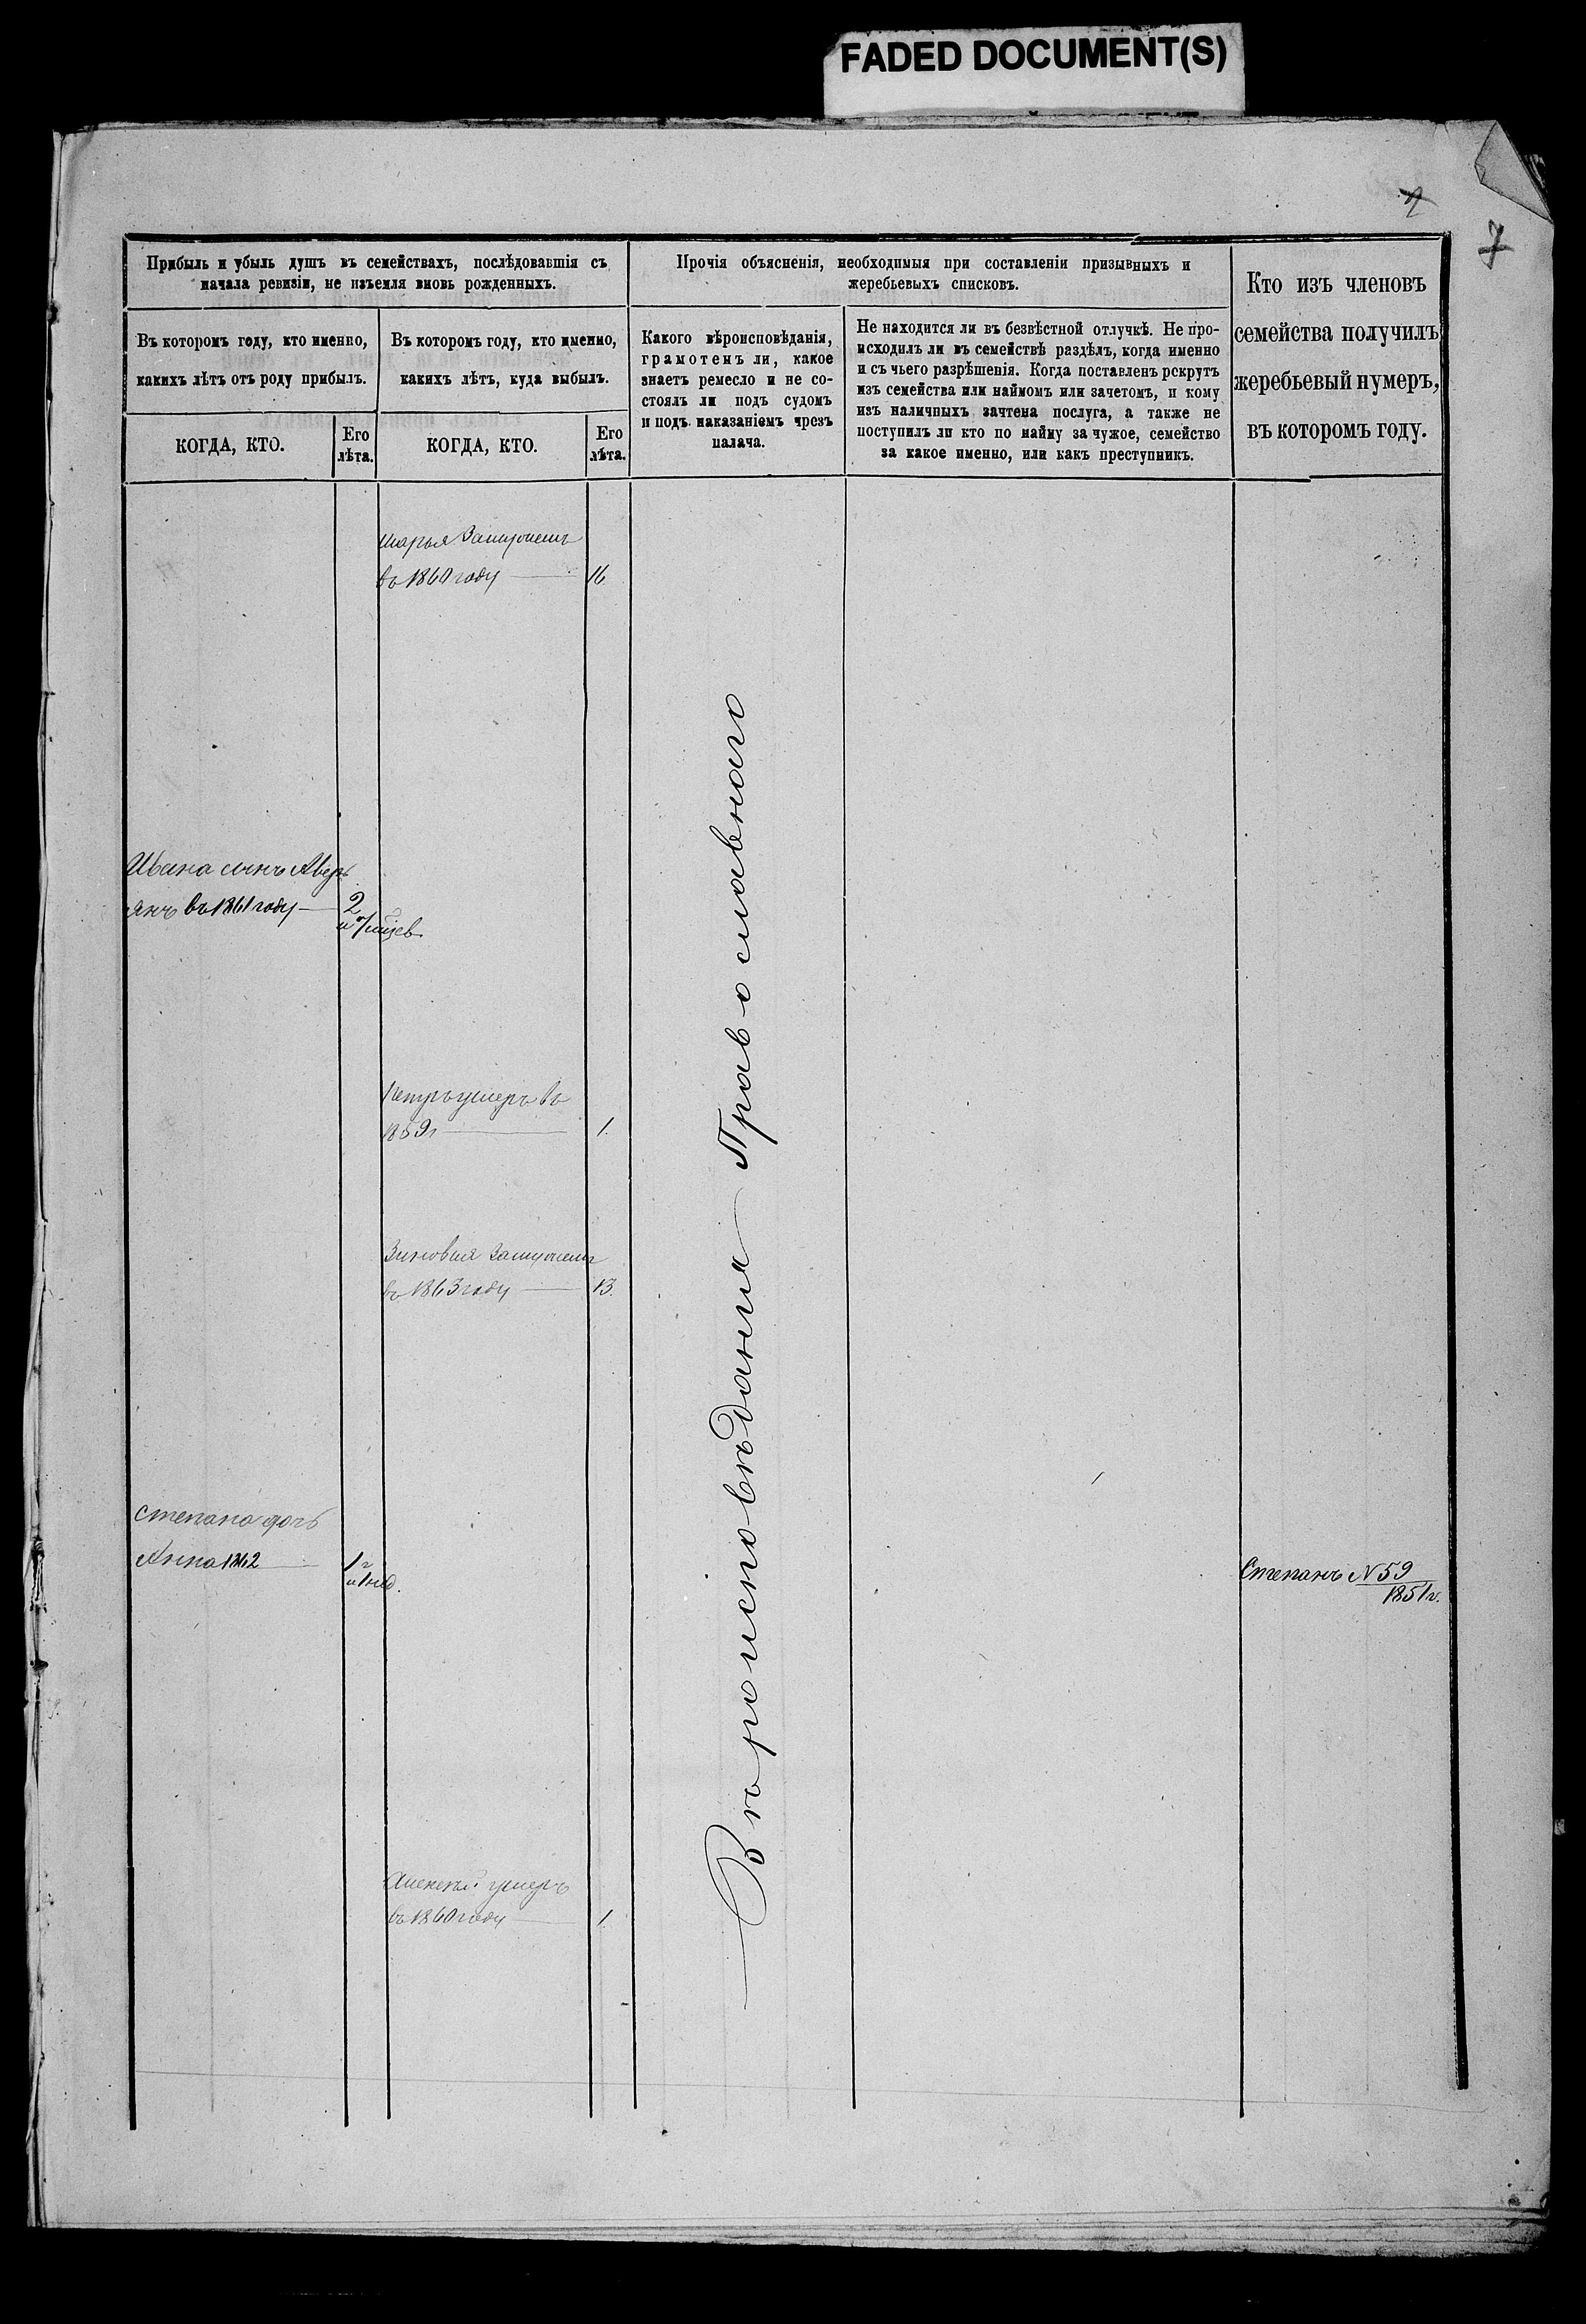 FADED DOCUMENT(S)
7
Прибыль и убыль душъ въ семействахъ, послѣдовавшія съ
начала ревизіи, не изъемля вновь рожденныхъ.
Въ которомъ году, кто именно,
какихъ лѣтъ отъ роду прибылъ.
КОГДА, КТО.
Его
лѣта.
Въ которомъ году, кто именно,
какихъ лѣтъ, куда выбылъ.
КОГДА, КТО.
Его
лѣта.
Прочія объясненія, необходимыя при составленіи призывныхъ и
жеребьевыхъ списковъ.
Какого вѣроисповѣданія,
грамотенъ ли, какое
знаетъ ремесло и не со-
стоялъ ли подъ судомъ
и подъ наказаніемъ чрезъ
палача.
Не находится ли въ безвѣстной отлучкѣ. Не про-
исходилъ ли въ семействѣ раздѣлъ, когда именно
и съ чьего разрѣшенія. Когда поставленъ рекрутъ
изъ семейства или наймомъ или зачетомъ, и кому
изъ наличныхъ зачтена послуга, а также не
поступилъ ли кто по найму за чужое, семейство
за какое именно, или какъ преступникъ.
Кто изъ членовъ
семейства получилъ
жеребьевый нумеръ,
въ которомъ году.
Марья Замужемъ
въ 1860 году 16
Ивана сынъ Авер
янъ въ 1861 году 2
Петръ умеръ въ
1859г 1.
Зиновия Замужемъ
въ 1863 году 13.
Степана дочь
Анна 1862 1 г
и 1 нед.
Степанъ N 59
1851 г.
Алексей умеръ
въ 1860 году 1.
Вѣроисповѣдания Православнаго